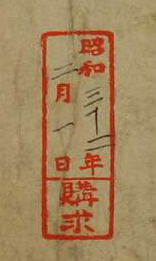 昭和三十二年
二月一日
購求